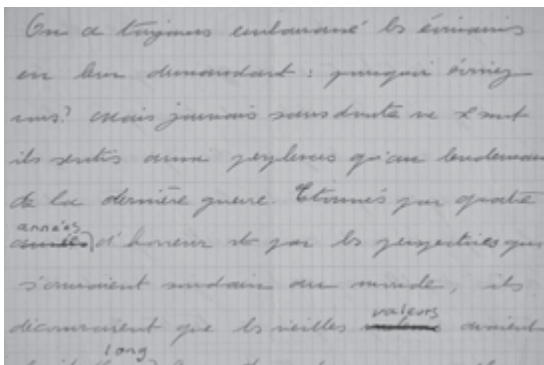 On a toujours embarrassé les écrivains
en leur demandant : pourquoi écrivez
vous? Mais jamais sans doute ne se sont
ils sentis aussi perplexes qu'au lendemain
de la dernière guerre. Etonnés par quatre
années
d'horreur et par les perspectives que
s'ouvraient soudain au monde, ils
valeurs
découvraient que les vieilles avaient
long